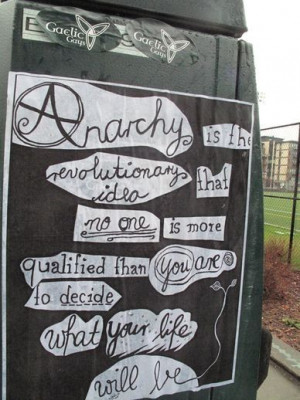 Gaelic Gasp
Gaelic Gasp
Anarchy is the
revolutionary idea that
no one is more
qualified than you are
to decide
what your life
will be